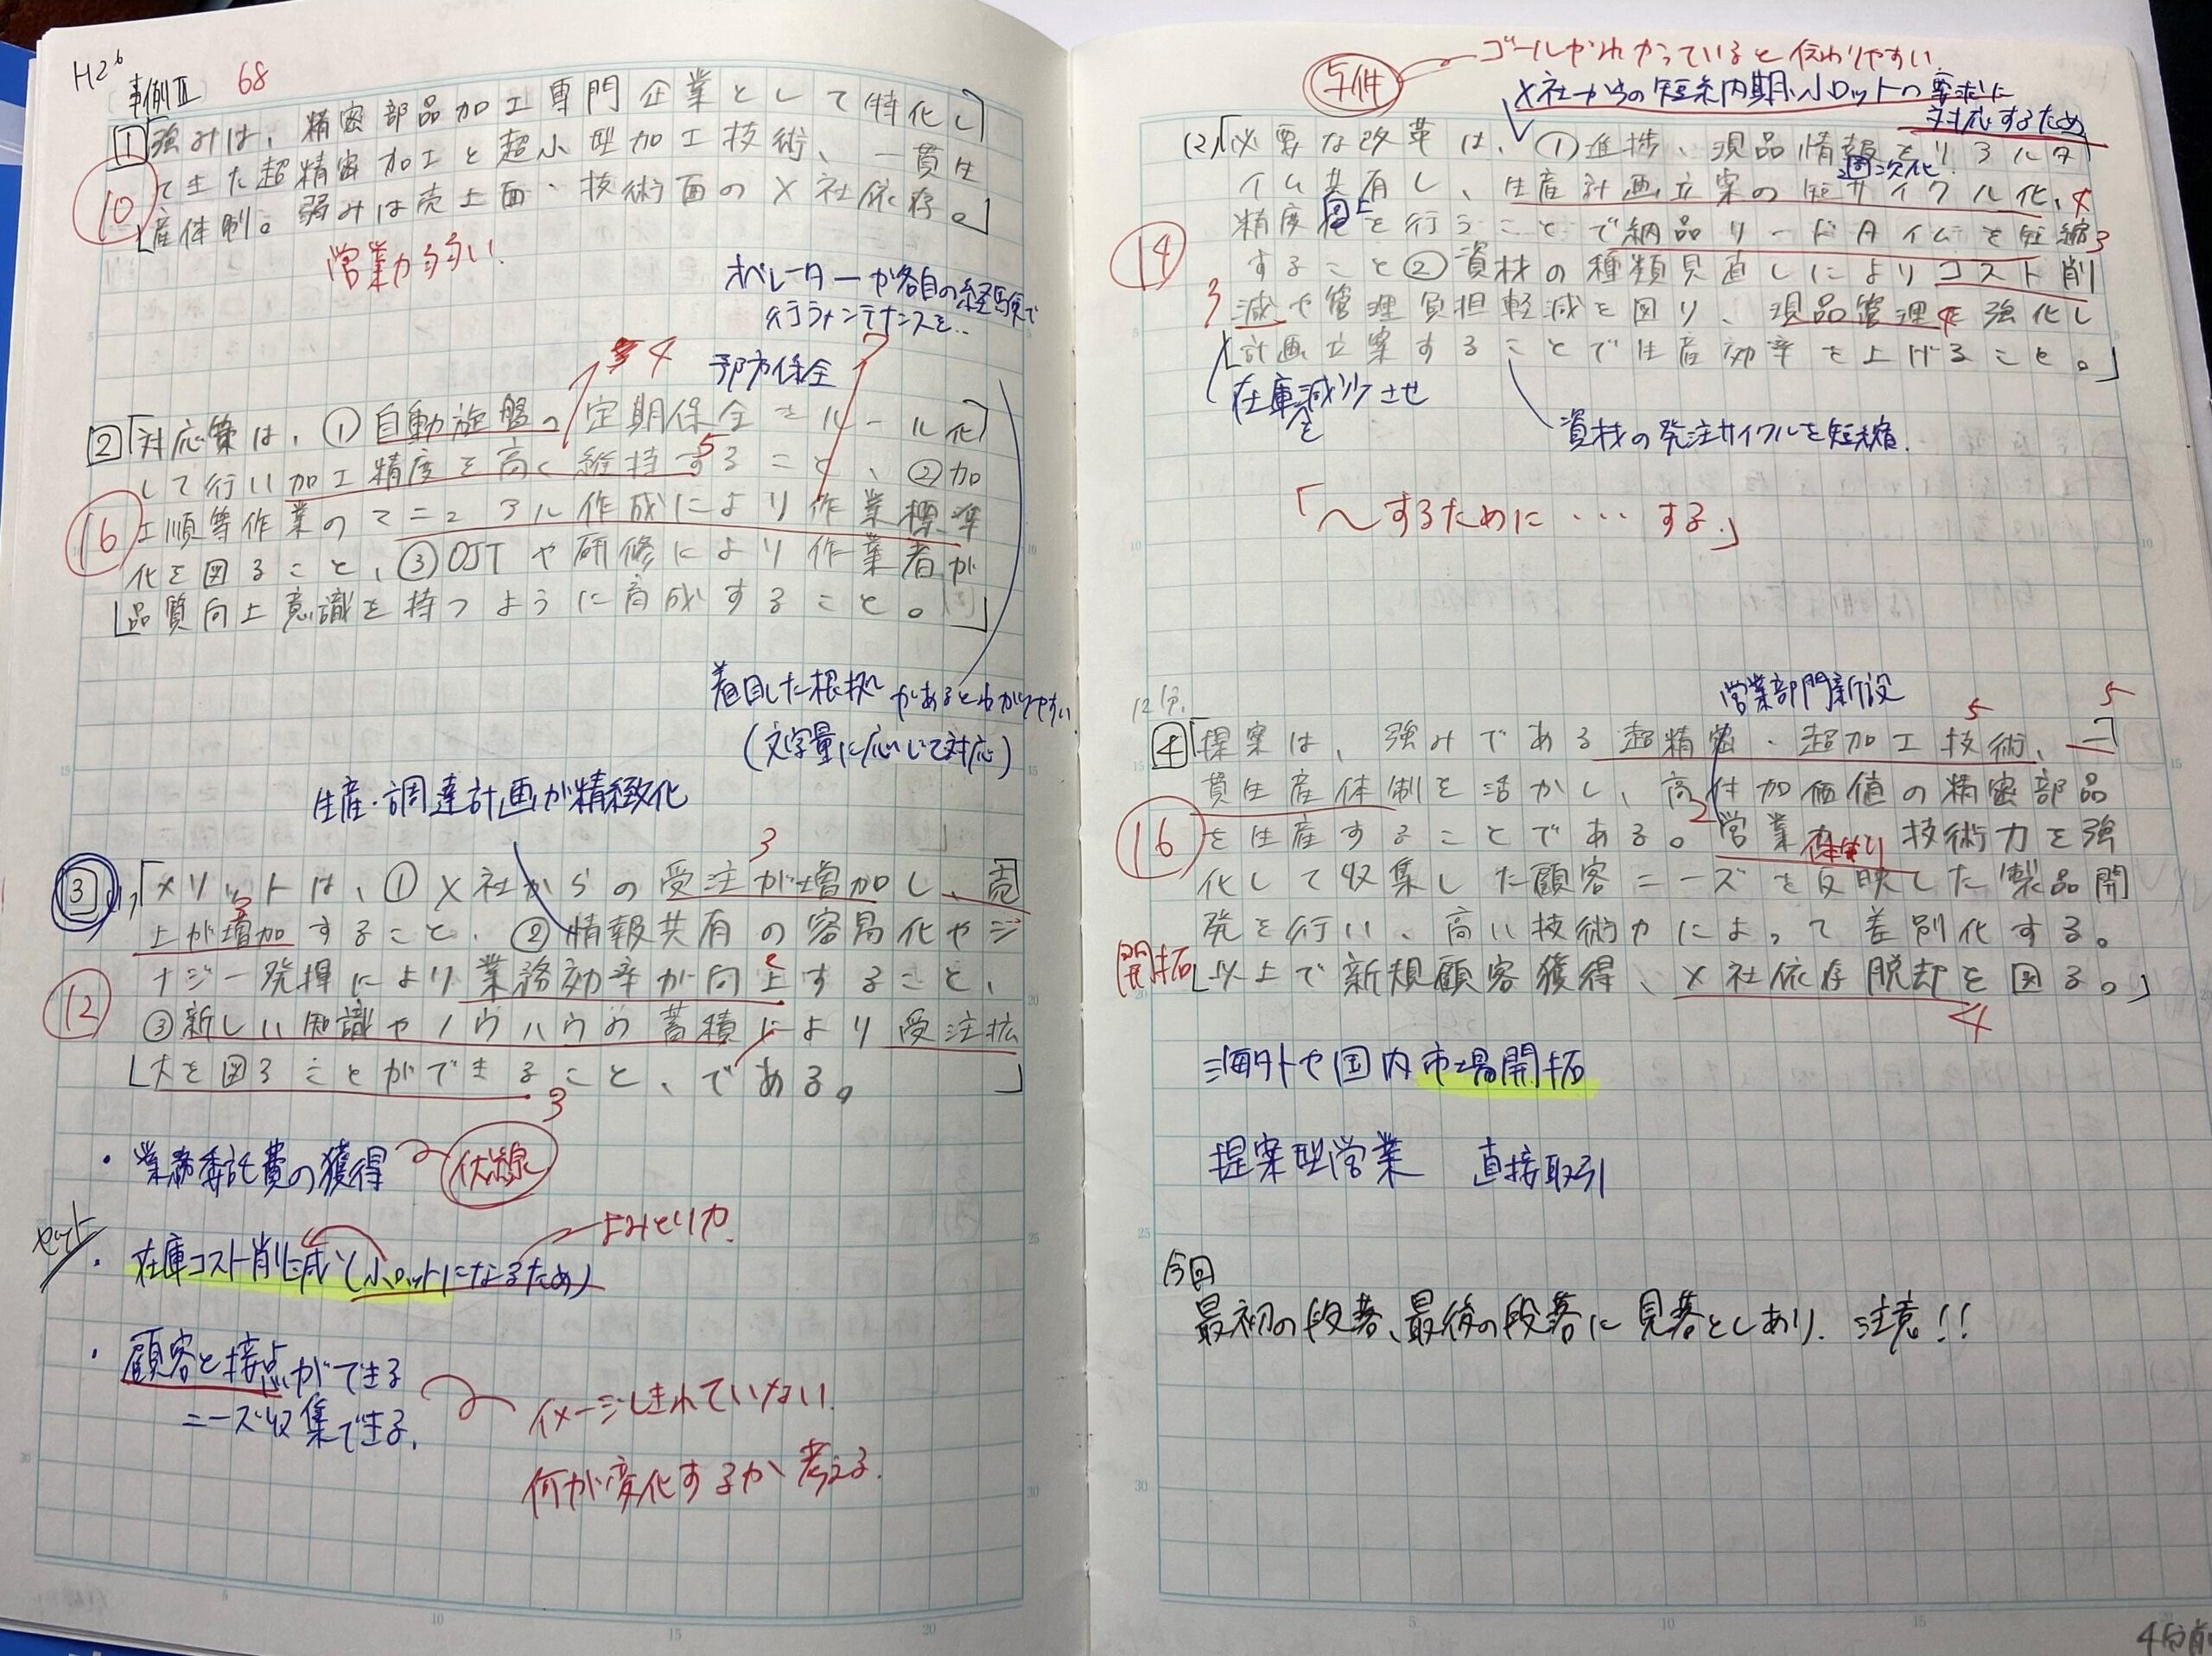 H26
事例Ⅲ 68
1 「強みは、精密部品加工専門企業として特化し
てきた超精密加工と超小型加工技術、一貫生
産体制。弱みは売上面・技術面のX社依存。」
10
営業力弱い.
オペレーターが各自の経験で
行うメンテナンスを..
4
予防保全
2 「対応策は、①自動旋盤の定期保全をルール化
して行い加工精度を高く維持すること、②加
5
工順等作業のマニュアル作成により作業標準
化を図ること、③OJTや研修により作業者が
品質向上意識を持つように育成すること。」
16
着目した根拠があるとわかりやすい
(文字量に応じて対応)
生産・調達計画が精緻化
3
3 (1)「メリットは、①X社からの受注が増加し、売
上が増加すること、②情報共有の容易化やシ
ナジー発揮により業務効率が向上すること、
③新しい知識やノウハウの蓄積により受注拡
大を図ることができること、である。」
12
3
・業務委託費の獲得 伏線
セット
よみとり力.
・在庫コスト削減(小ロットになるため)
・顧客と接点ができる
ニーズ収集できる.
イメージしきれていない.
何が変化するか考える.
与件 ゴールがわかっていると伝わりやすい.
X社からの短納期、小ロットの要求に
対応するため
(2)「必要な改革は、①進捗、現品情報をリアルタ
週次化
イム共有し、生産計画立案の短サイクル化、4
精度向上を行うことで納品リードタイムを短縮3
すること②資材の種類見直しによりコスト削
3 減や管理負担軽減を図り、現品管理を強化し
計画立案することで生産効率を上げること。」
14
在庫を減少させ
資材の発注サイクルを短縮.
「〜するために・・・する.」
12分.
営業部門新設
5 5
4 「提案は、強みである超精密・超加工技術、一
貫生産体制を活かし、高付加価値の精密部品
を生産することである。営業 技術力を強
化して収集した顧客ニーズを反映した製品開
発を行い、高い技術力によって差別化する。
開拓 以上で新規顧客獲得、X社依存脱却を図る。」
16
4
海外や国内市場開拓
提案型営業 直接取引
今回
最初の段落、最後の段落に見落としあり. 注意!!